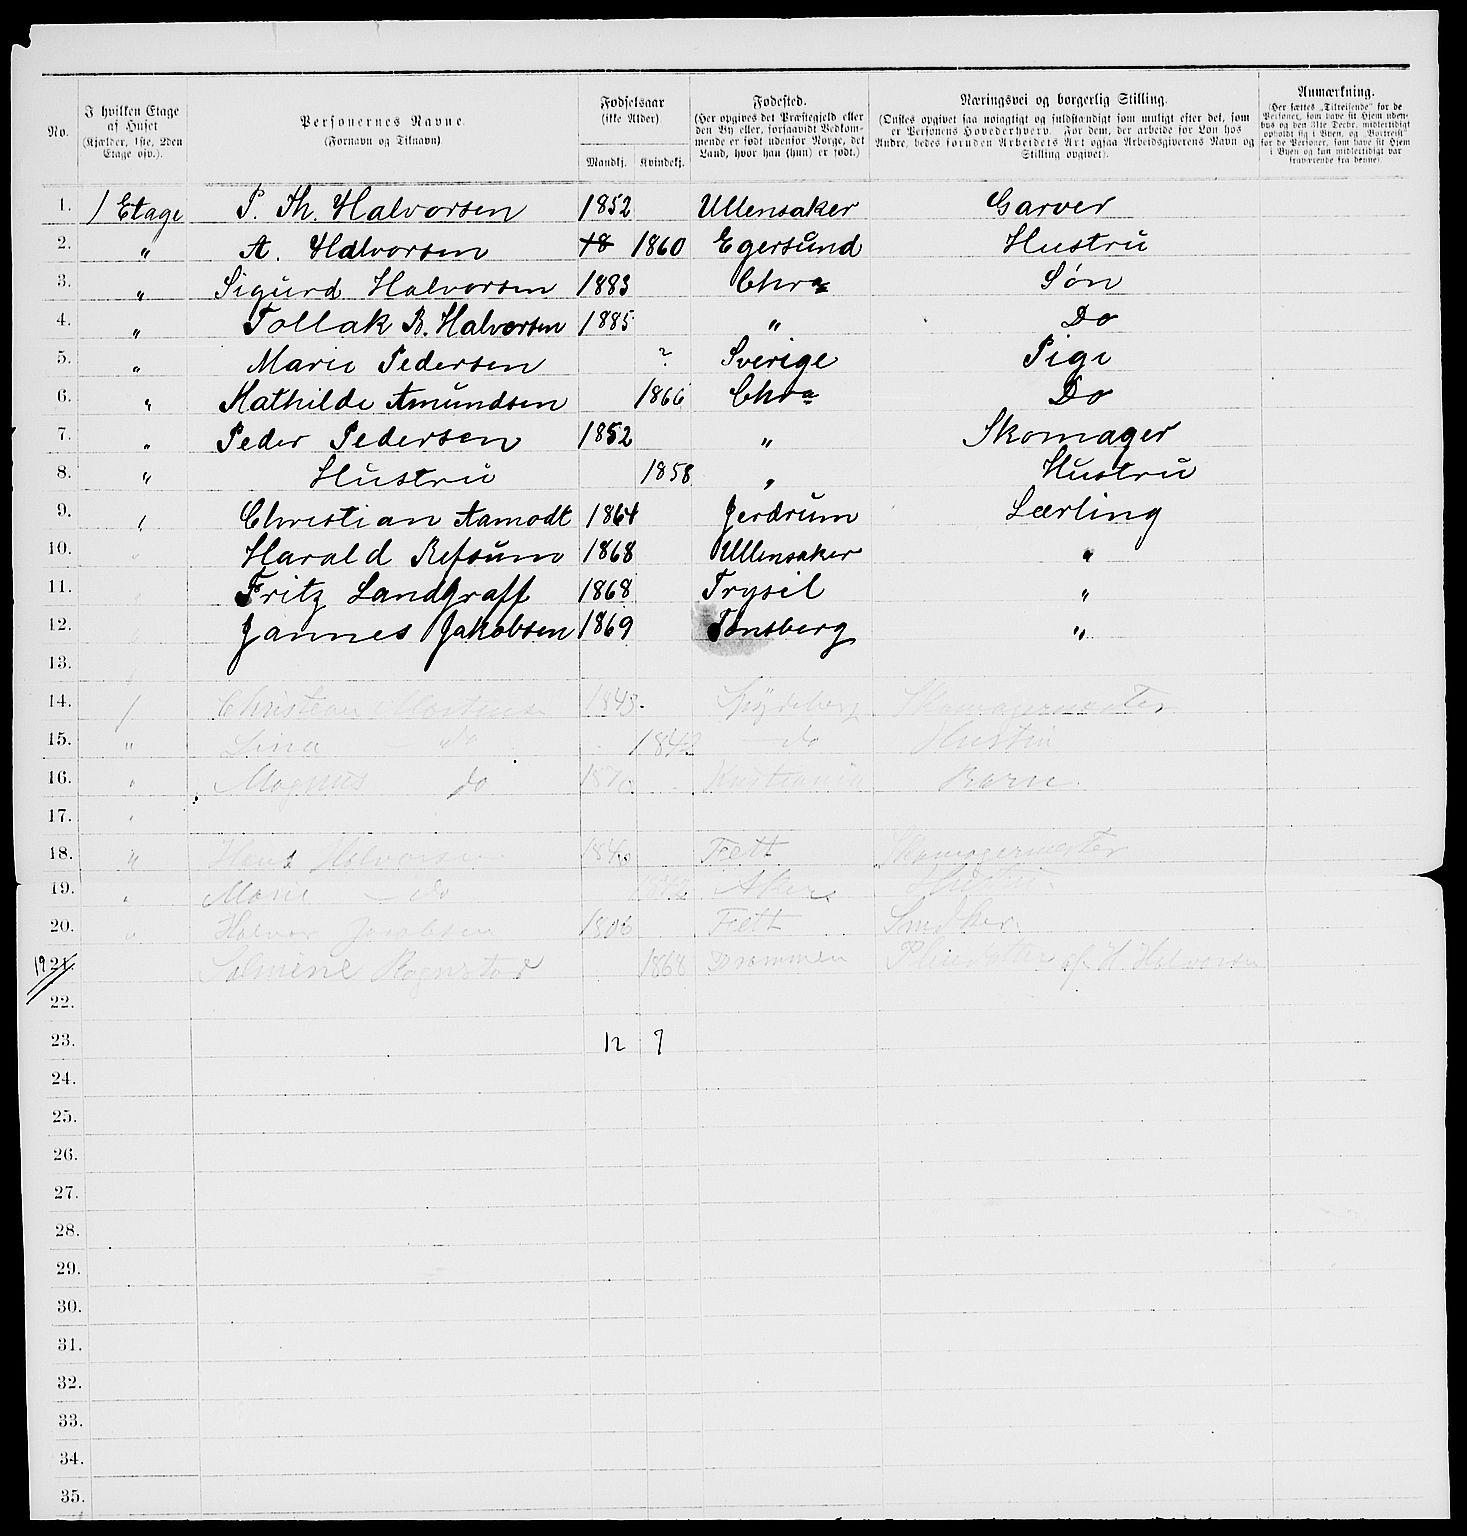 No. I hvilken Etage af Huset (Kjælder, 1ste, 2den Etage osv.). Personernes Navne. (Fornavn og Tilnavn) Fødselsaar (ikke Alder) Mandkj. Kvindekj. Fødested. (Her opgives det Præstegjeld eller den By eller, forsaavidt Vedkommende er født udenfor Norge, det Land, hvor han (hun) er født.) Næringsvei og borgerlig Stilling. (Ønskes opgivet saa nøiagtigt og fuldstændigt som muligt efter det, som er Personens Hovederhverv. For dem, der arbeide for Løn hos Andre, bedes foruden Arbeidets Art ogsaa Arbeidsgiverens Navn og Stilling opgivet). Anmærkning. (Her sættes „Tilreisende" for de Personer, som have sit Hjem udenbys og den 31te Decbr. midlertidigt opholdt sig i Byen, og „Bortreist" for de Personer, som have sit Hjem i Byen og kun midlertidigt var fraværende fra denne).
1. 1 Etage P. Th. Halvorsen 1852 Ullensaker Garver
2. " A. Halvorsen 18 1860 Egersund Hustru
3. " Sigurd Halvorsen 1883 Chra Søn
4. " Tollak B. Halvorsen 1885 " Do
5. " Marie Pedersen ? Sverige Pige
6. " Mathilde Amundsen 1866 Chra Do
7. " Peder Pedersen 1852 " Skomager
8. " Hustru 1858 " Hustru
9. " Christian Aamodt 1864 Jerdrum Lærling
10. " Harald Refsum 1868 Ullensaker "
11. " Fritz Landgraff 1868 Trysil "
12. " Jannes Jakobsen 1869 Tønsberg "
13. "
14. 1 Christian Mortensen 1843 Spydeberg Skomagermester
15. " Lina do 1842 do Hustru
16. " Magnus do Kristiania Barn
17. "
18. " Hans Halvorsen Fett Skomagermester
19. " Marie do Aker Hustru
20. " Halvor Jacobsen 1806 Fett
19 21. Rognstad 1868 Drammen af H Halvorsen
22.
23. 12 7
24.
25.
26.
27.
28.
29.
30.
31.
32.
33.
34.
35.